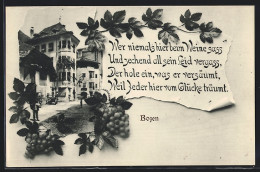 Wer niemals hier beim Weine sass
Und zechend all sein Leid vergass,
Der hole ein, was er versäumt,
Weil Jeder hier vom Glücke träumt.
Bozen